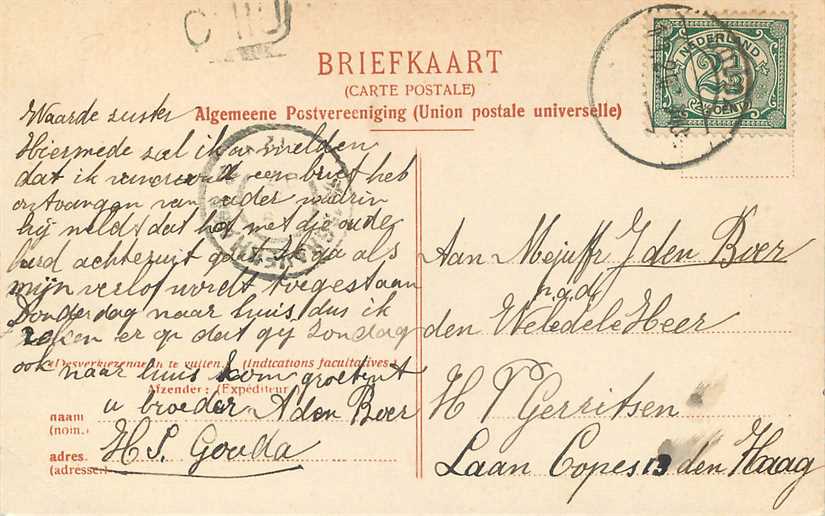 BRIEFKAART
(CARTE POSTALE)
Algemeene Postvereeniging (Union postale universelle)
NEDERLAND
2½
Waarde zuster
Hiermede zal ik u melden
dat ik van een brief heb
ontvangen van vader waarin
hij meldt dat het met die oude
hard achteruit gaat Ik ga als
mijn verlof wordt toegestaan
Donderdag naar huis, dus ik
reken er op dat gij Zondag
ook naar huis kom groetent
u broeder A den Boer
H S. Gouda
(Desverkiezende in te vullen.) (Indications facultatives.)
Afzender: (Expéditeur
naam
(nom.)
adres.
(adresse:)
Aan Mejuffr J den Boer
p.a.d.
den Weledele Heer
H V Gerritsen
Laan Copes 13 den Haag